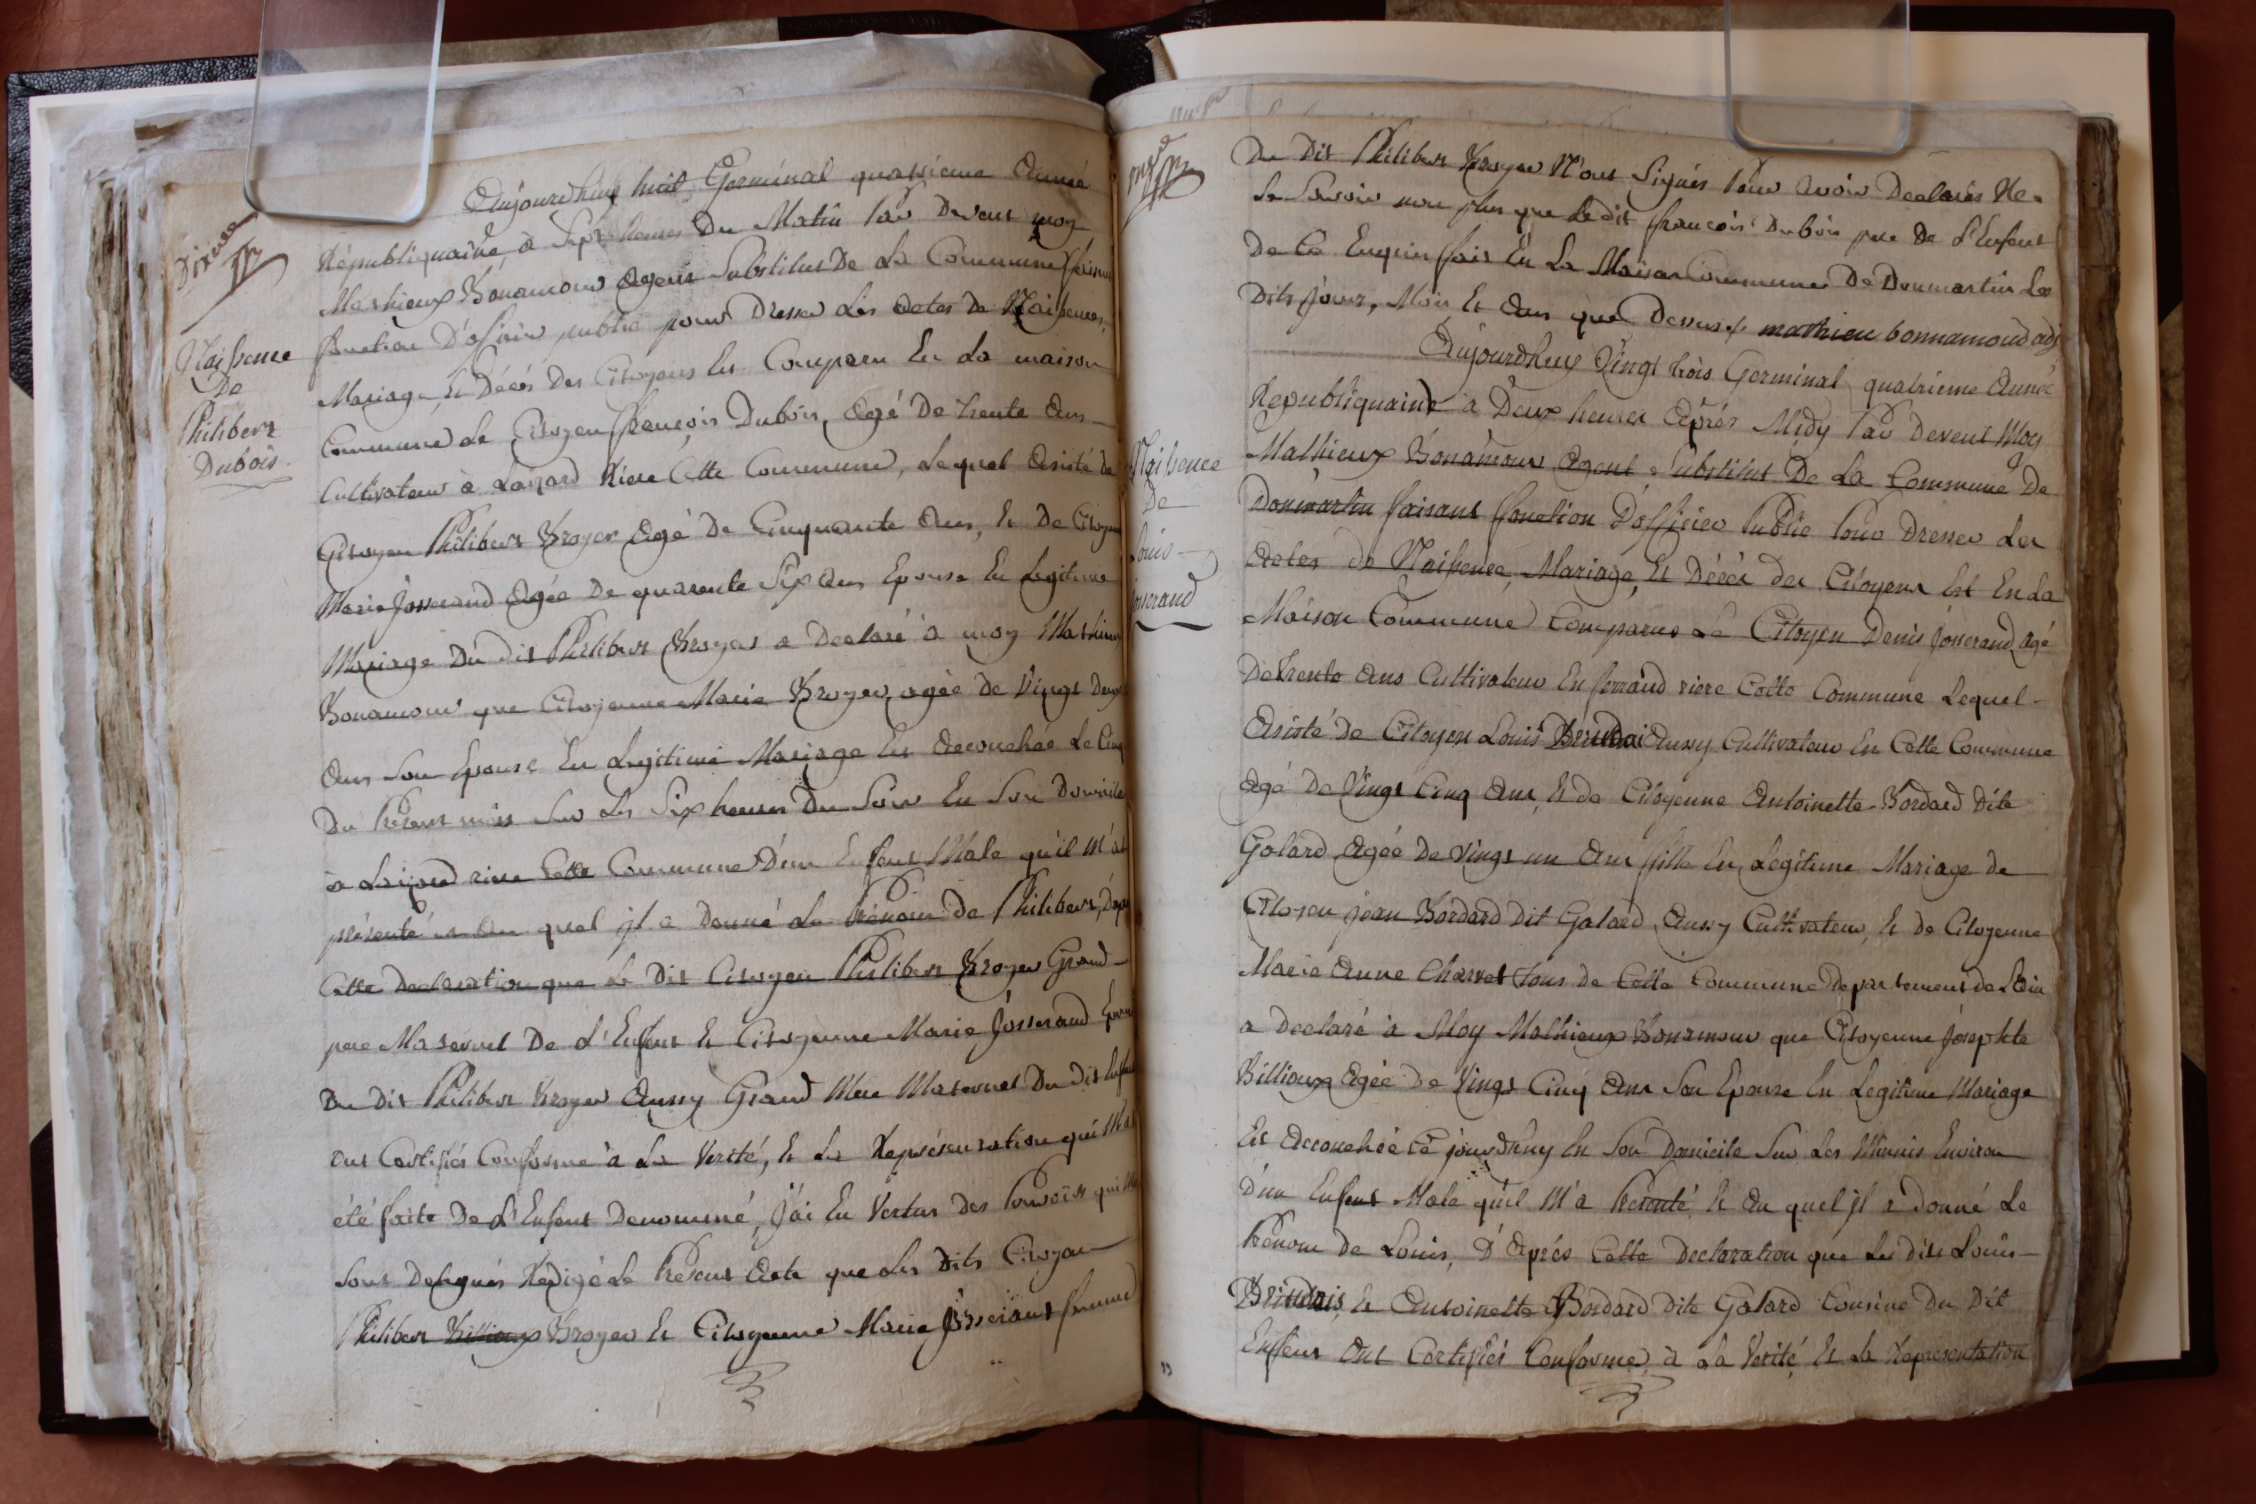 Aujourdhuy huit Germinal quatrieme Année
Républiquaine, à Sept heures Du Matin Par Devent moy
Mathieux Bonamour Agent Substitut De La Commune faisant
fonction D'oficier public pour Dresser Les Actes De Naissences,
Mariage, & Décés Des Citoyens Est Comparu En La maison
Commune Le Citoyen François Dubois, Agé De trente Ans
Cultivateur à Layard Riere Cette Commune, Lequel Asisté de
Citoyen Philibert Broyer Agé De Cinquante Ans, & De Citoyenne
Marie Josserand Agée De quarente Six Ans Epouse En Legitime
Mariage Du dit Philibert Broyer a Declaré à moy Mathieux
Bonamour que Citoyenne Marie Broyer, agée de Vingt Deux
Ans Son Epouse En Legitime Mariage Est Accouchée Le Cinq
Du Présent mois Sur Les Six heures Du Soir En Son Domicile
à Layard riere Cette Commune D'un Enfent Mâle qu'il M'at
présenté & Au quel jl a Donné Le Prénom De Philibert, D'après
Cette Declaration que Le Dit Citoyen Philibert Broyer Grand
pere Maternel De L'Enfent & Citoyenne Marie Josserand Epouse
Du Dit Philibert Broyer Aussy Grand Mere Maternel Du dit Enfent
Ont Certifiés Conforme à La Verité, & La Représentation qui M'at
été faite De L'Enfent Denommé, J'ai En Vertus Des Pouvoirs qui Me
Sont Delegués Rédigé Le Présent Acte que Les Dits Citoyen
Philibert Billioux Broyer & Citoyenne Marie Josserant femme
Naissence
De
Philibert
Dubois
Du Dit Philibert Broyer N'ont Signés Pour Avoir Declarés Ne
Le Savoir non plus que Ledit François Dubois pere De L'Enfent
De Ce Enquis fait En La Maison Commune De Domartin Les
Dits Jour, Mois & Ans que Dessus mathieu bonnamoud adj
Aujourdhuy Vingt trois Germinal quatrieme Année
Republiquaine à Deux heures Après Midy Par Devent Moy
Mathieux Bonamour Agent Substitut De La Commune De
Domartin faisant fonction D'officier Public Pour Dresser Les
Actes De Naissence, Mariage, & Décés des Citoyens Est En La
Maison Commune Comparus Le Citoyen Denis Josserand Agé
De trente Ans Cultivateur En ferrand riere Cette Commune Lequel
Asisté De Citoyen Louis Brudai Aussy Cultivateur En Cette Commune
Agé De Vingt Cinq Ans, & de Citoyenne Antoinette Bordard Dite
Golard Agée De Vingt un Ans fille En Légitime Mariage de
Citoyen jean Bordard Dit Galard, Aussy Cultivateur, & De Citoyenne
Marie Anne Charvet tous de Cette Commune Departement de L'Ain
a Declaré à Moy Mathieux Bonamour que Citoyenne Josephte
Billioux Agée De Vingt Cinq Ans Son Epouse En Legitime Mariage
Est Accouchée Ce jourdhuy En Son Domicile Sur Les Minuis Environ
D'un Enfent Mâle qu'il M'a Présenté & Au quel Jl a Donné Le
Prénom De Louis, D'Après Cette Declaration que Les dits Louis
& Antoinette Bordard Dite Galard Cousine Du Dit
Enfent Ont Certifiés Conforme à La Verité, & La Représentation
Naissence
De
Louis
Josserand